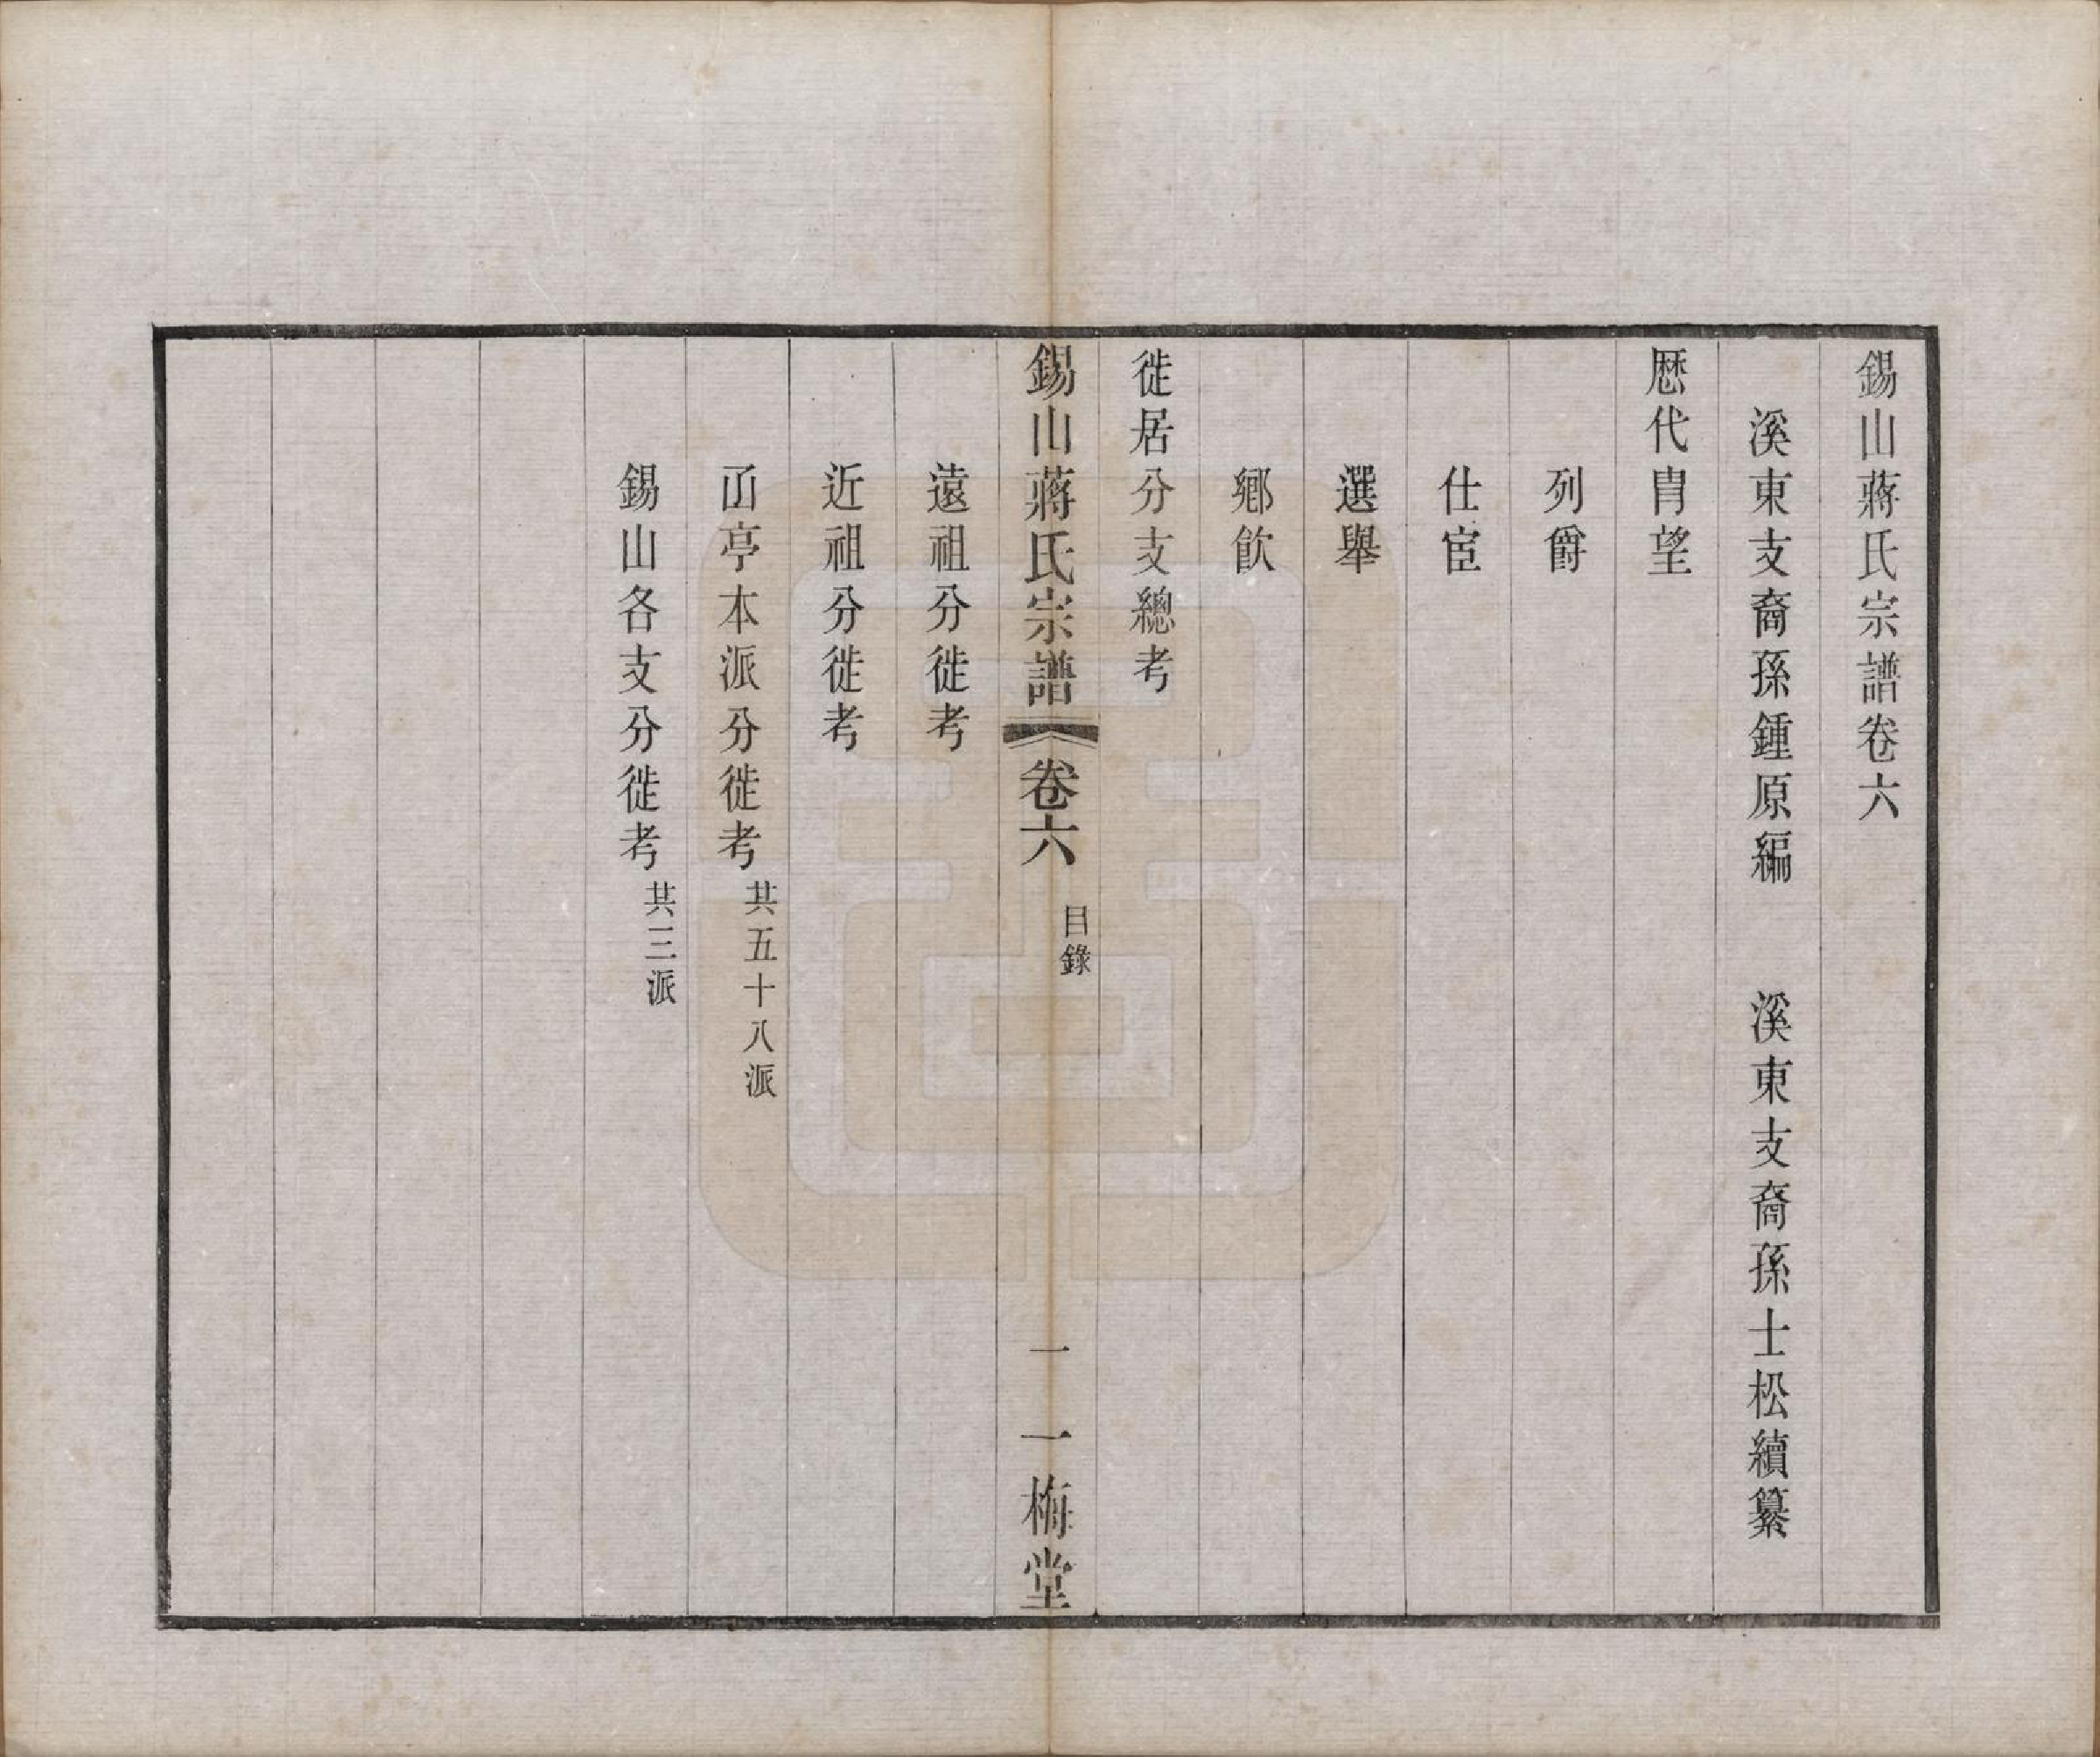 錫山蔣氏宗譜卷六
溪東支裔孫鍾原編　溪東支裔孫士松續纂
歷代胄望
列爵
仕宦
選舉
鄉飲
徙居分支總考
錫山蔣氏宗譜　卷六　目錄　一　一梅堂
遠祖分徙考
近祖分徙考
㓚亭本派分徙考共五十八派
錫山各支分徙考共三派